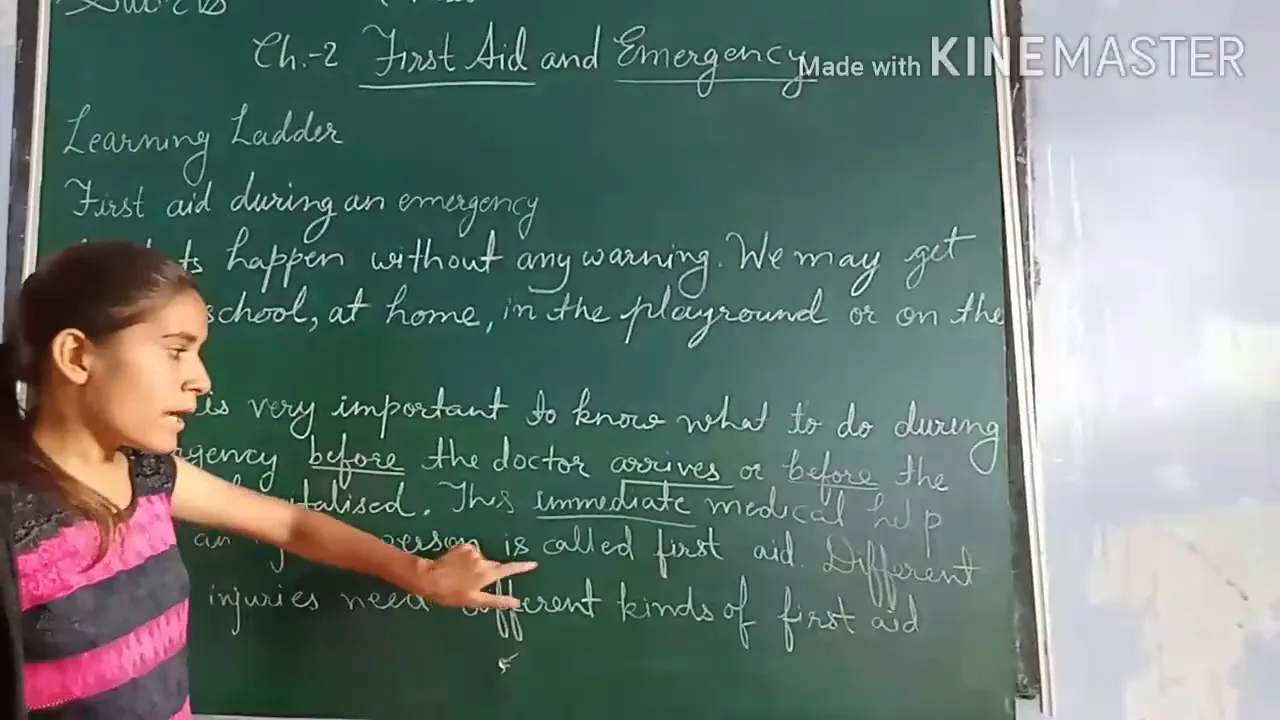 Ch.-2 First Aid and Emergency
Made with KINEMASTER
Learning Ladder
First aid during an emergency
happen without any warning. We may get
school, at home, in the playground or on the
is very important to know what to do during
before the doctor arrives or before the
This immediate medical help
is called first aid. Different
injuries need different kinds of first aid